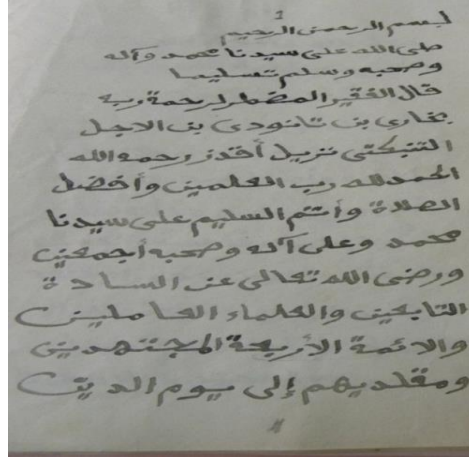 1
بسم الله الرحمن الرحيم
صلى الله على سيدنا محمد وآله
وصحبه وسلم تسليما
قال الفقير المضطر لرحمة ربه
بخاري بن تانودي بن الاجل
التنبكتي نزيل أقدز رحمه الله
الحمد لله رب العلمين وأفضل
الصلاة وأتم السليم على سيدنا
محمد وعلى آله وصحبه أجمعين
ورضى الله تعالى عن السادة
التابعين والعلماء العاملين
والائمة الأربعة المجتهدين
ومقلديهم إلى يوم الدين